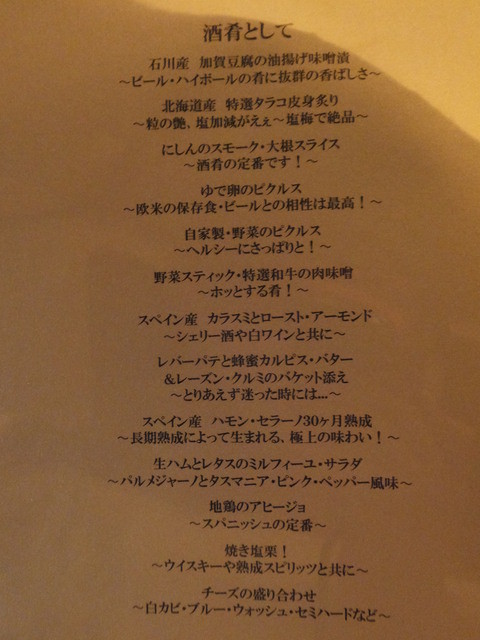 酒肴として
石川産 加賀豆腐の油揚げ味噌漬
～ビール・ハイボールの肴に抜群の香ばしさ～
北海道産 特選タラコ皮身炙り
～粒の艶、塩加減がええ～塩梅で絶品～
にしんのスモーク・大根スライス
～酒肴の定番です！～
ゆで卵のピクルス
～欧米の保存食・ビールとの相性は最高！～
自家製・野菜のピクルス
～ヘルシーにさっぱりと！～
野菜スティック・特選和牛の肉味噌
～ホッとする肴！～
スペイン産 カラスミとロースト・アーモンド
～シェリー酒や白ワインと共に～
レバーパテと蜂蜜カルピス・バター
＆レーズン・クルミのバケット添え
～とりあえず迷った時には…～
スペイン産 ハモン・セラーノ30ヶ月熟成
～長期熟成によって生まれる、極上の味わい！～
生ハムとレタスのミルフィーユ・サラダ
～パルメジャーノとタスマニア・ピンク・ペッパー風味～
地鶏のアヒージョ
～スパニッシュの定番～
焼き塩栗！
～ウイスキーや熟成スピリッツと共に～
チーズの盛り合わせ
～白カビ・ブルー・ウォッシュ・セミハードなど～